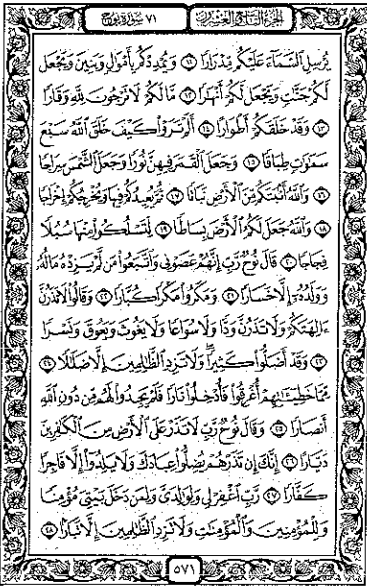 الجزء التاسع والعشرون ٧١ سورة نوح
يُرْسِلِ السَّمَاءَ عَلَيْكُم مِّدْرَارًا ١١ وَيُمْدِدْكُم بِأَمْوَالٍ وَبَنِينَ وَيَجْعَل
لَّكُمْ جَنَّاتٍ وَيَجْعَل لَّكُمْ أَنْهَارًا ١٢ مَّا لَكُمْ لَا تَرْجُونَ لِلَّهِ وَقَارًا
١٣ وَقَدْ خَلَقَكُمْ أَطْوَارًا ١٤ أَلَمْ تَرَوْا كَيْفَ خَلَقَ اللَّهُ سَبْعَ
سَمَاوَاتٍ طِبَاقًا ١٥ وَجَعَلَ الْقَمَرَ فِيهِنَّ نُورًا وَجَعَلَ الشَّمْسَ سِرَاجًا
١٦ وَاللَّهُ أَنبَتَكُم مِّنَ الْأَرْضِ نَبَاتًا ١٧ ثُمَّ يُعِيدُكُمْ فِيهَا وَيُخْرِجُكُمْ إِخْرَاجًا
١٨ وَاللَّهُ جَعَلَ لَكُمُ الْأَرْضَ بِسَاطًا ١٩ لِّتَسْلُكُوا مِنْهَا سُبُلًا
فِجَاجًا ٢٠ قَالَ نُوحٌ رَّبِّ إِنَّهُمْ عَصَوْنِي وَاتَّبَعُوا مَن لَّمْ يَزِدْهُ مَالُهُ
وَوَلَدُهُ إِلَّا خَسَارًا ٢١ وَمَكَرُوا مَكْرًا كُبَّارًا ٢٢ وَقَالُوا لَا تَذَرُنَّ
ءَالِهَتَكُمْ وَلَا تَذَرُنَّ وَدًّا وَلَا سُوَاعًا وَلَا يَغُوثَ وَيَعُوقَ وَنَسْرًا
٢٣ وَقَدْ أَضَلُّوا كَثِيرًا وَلَا تَزِدِ الظَّالِمِينَ إِلَّا ضَلَالًا ٢٤
مِّمَّا خَطِيئَاتِهِمْ أُغْرِقُوا فَأُدْخِلُوا نَارًا فَلَمْ يَجِدُوا لَهُم مِّن دُونِ اللَّهِ
أَنصَارًا ٢٥ وَقَالَ نُوحٌ رَّبِّ لَا تَذَرْ عَلَى الْأَرْضِ مِنَ الْكَافِرِينَ
دَيَّارًا ٢٦ إِنَّكَ إِن تَذَرْهُمْ يُضِلُّوا عِبَادَكَ وَلَا يَلِدُوا إِلَّا فَاجِرًا
كَفَّارًا ٢٧ رَّبِّ اغْفِرْ لِي وَلِوَالِدَيَّ وَلِمَن دَخَلَ بَيْتِيَ مُؤْمِنًا
وَلِلْمُؤْمِنِينَ وَالْمُؤْمِنَاتِ وَلَا تَزِدِ الظَّالِمِينَ إِلَّا تَبَارًا ٢٨
٥٧١